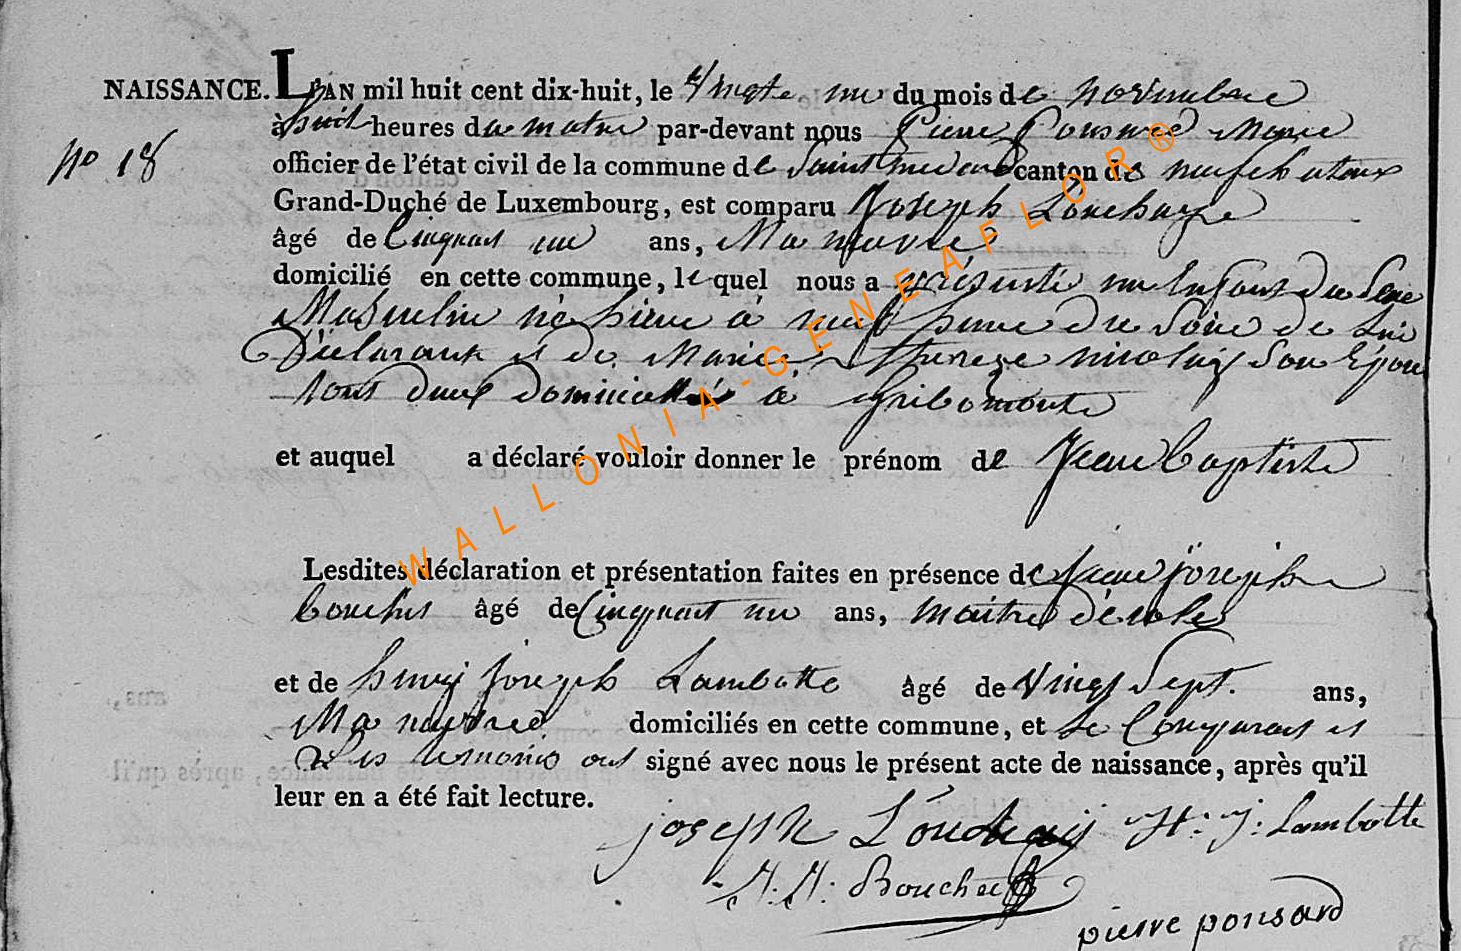 NAISSANCE. L'AN mil huit cent dix-huit, le Vingte un du mois de novembre
à huit heures du matin par-devant nous Pierre Ponsard Maire
N° 18
officier de l'état civil de la commune de Saint medard canton de neufchateaux
Grand-Duché de Luxembourg, est comparu Joseph Louchaye
âgé de Cinquant un ans, Manuvre
domicilié en cette commune, le quel nous a présenté un Enfant du Sexe
Masculin né hiere à neuf heure du Soire de Lui
Déclarant et de Marie therese nicolay Son Epouse
tous deux domicillié à Gribomonte
et auquel a déclaré vouloir donner le prénom de Jean Baptiste
Lesdites déclaration et présentation faites en présence de Jean joseph
bouchés âgé de Cinquant un ans, maitre décoles
et de henry joseph Lambotte âgé de Vingt Sept. ans,
Manuvre domiciliés en cette commune, et Le Comparant et
Les temoins ont signé avec nous le présent acte de naissance, après qu'il
leur en a été fait lecture.
joseph Louchay H: J: Lambotte
Bouché
pierre ponsard
WALLONIA-GENEAFLOR®